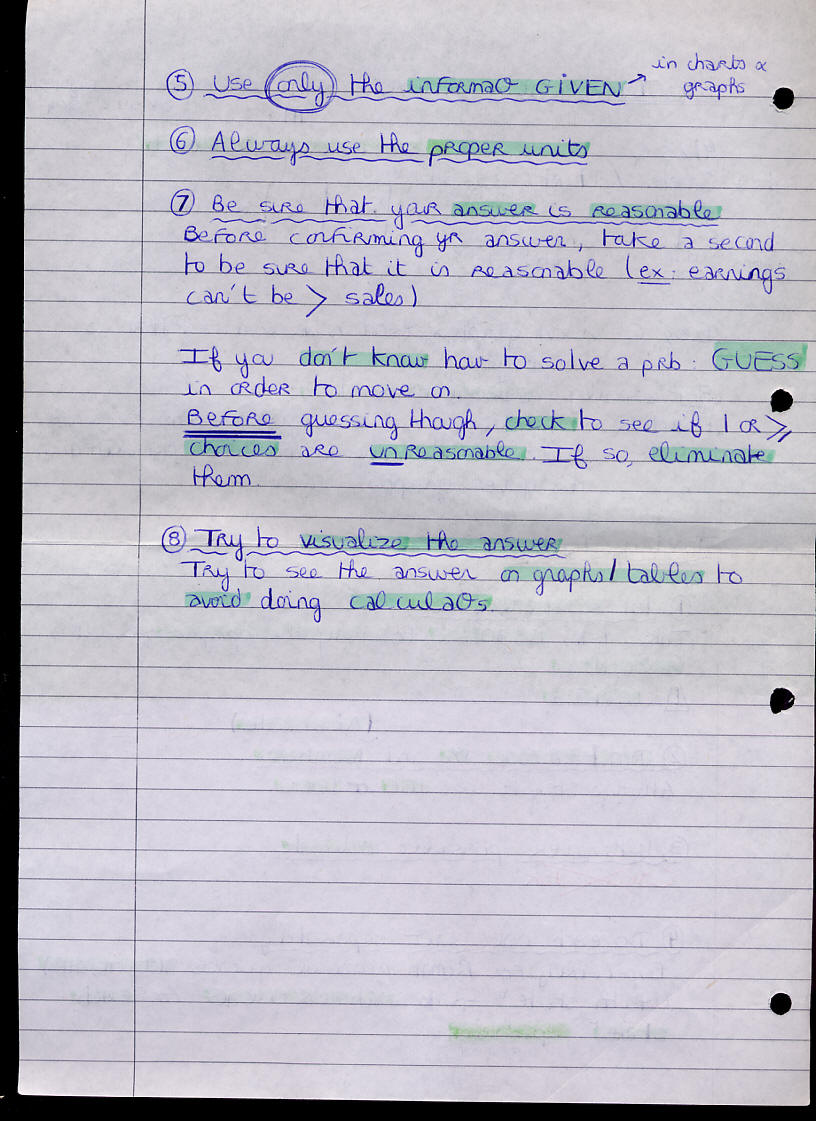 in charts &
⑤ Use only the informaθ GIVEN → graphs
⑥ Always use the proper units
⑦ Be sure that your answer is reasonable
Before confirming yr answer, take a second
to be sure that it is reasonable (ex: earnings
can't be > sales)
If you don't know how to solve a prb: GUESS
in order to move on.
Before guessing though, check to see if 1 or ≥
choices are unreasonable. If so, eliminate
them.
⑧ Try to visualize the answer
Try to see the answer on graphs/tables to
avoid doing calculaθs